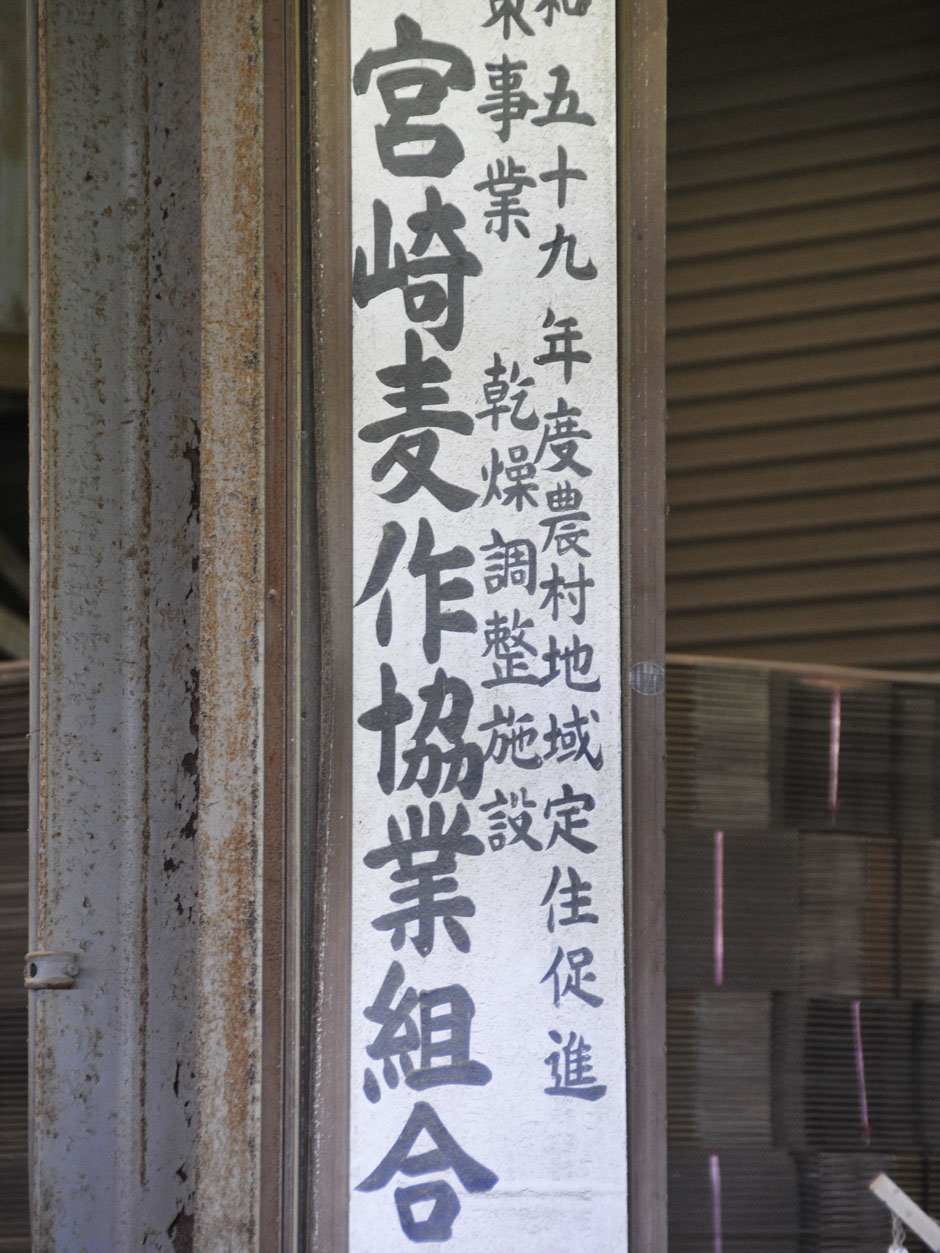 和五十九年度農村地域定住促進
事業 乾燥調整施設
宮崎麦作協業組合